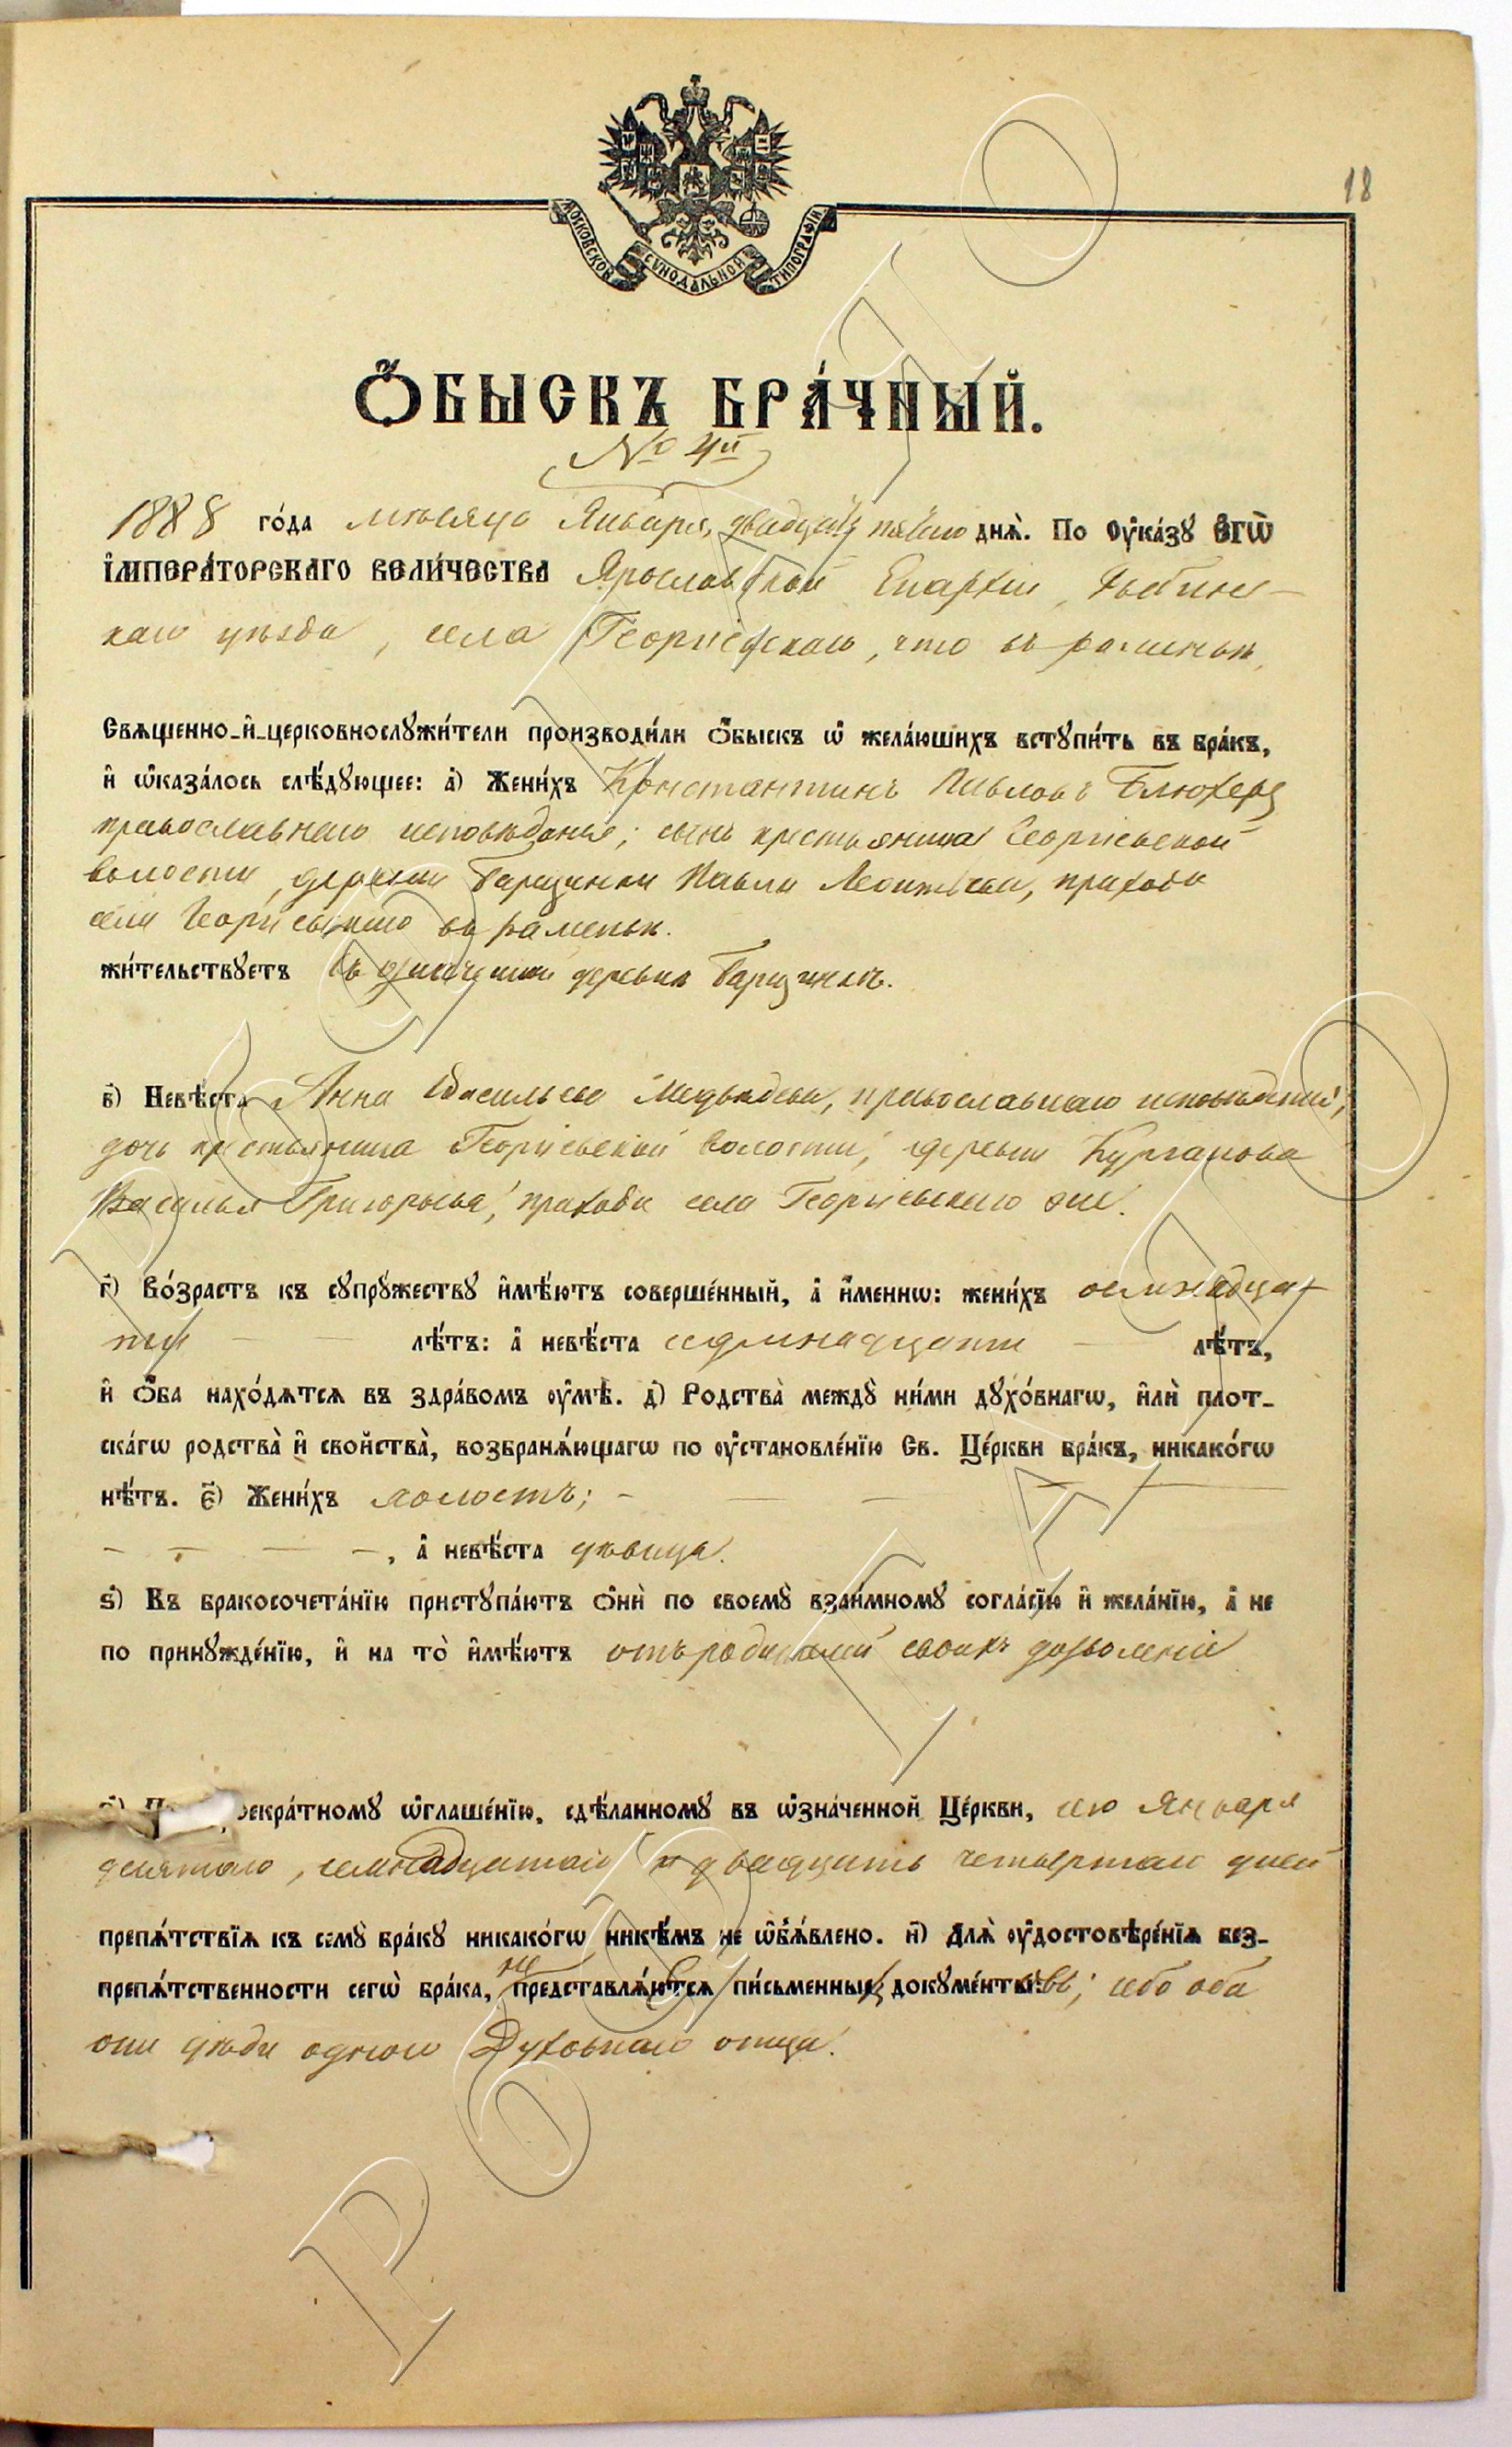 18
МОСКОВСКОЙ СѴНОДАЛЬНОЙ ТИПОГРАФІИ
Ѻ҆БЫСКЪ БРА́ЧНЫЙ.
№ 4й
1888 го́да мѣсяца Января, двадцать пятаго днѧ̀. По ᲂу҆ка́зꙋ Є҆ГѠ̀
І҆МПЕРА́ТОРСКАГО ВЕЛИ́ЧЕСТВА Ярославской Епархіи, Рыбинс-
каго уѣзда, села Георгіевскаго, что въ раменьѣ,
Свѧщенно-и҆-церковнослꙋжи́тели производи́ли ѻ҆́быскъ ѡ҆ жела́ющихъ встꙋпи́ть въ бра́къ,
и҆ ѡ҆каза́лось слѣ́дꙋющее: а҃) Жени́хъ Константинъ Павловъ Блюхеръ
православнаго исповѣданья; сынъ крестьянина Георгіевской
волости, деревни Барщинки Павла Леонтьева, прихода
села Георгіевскаго въ раменьѣ.
жи́тельствꙋетъ въ означенной деревнѣ Барщинкѣ.
в҃) Невѣ́ста Анна Васильева Медвѣдева, православнаго исповѣданія,
дочь крестьянина Георгіевской волости, деревни Курганова
Василья Григорьева, прихода села Георгіевскаго же.
г҃) Во́зрастъ къ сꙋпрꙋ́жествꙋ и҆мѣ́ютъ соверше́нный, а҆ и҆́меннѡ: жени́хъ осмнадца-
ти лѣ́тъ: а҆ невѣ́ста седмнадцати лѣ́тъ,
и҆ ѻ҆́ба нахо́дѧтсѧ въ здра́вомъ ᲂу҆мѣ̀. д҃) Родства̀ междꙋ̀ ни́ми дꙋхо́внагѡ, и҆лѝ плот-
ска́гѡ родства̀ и҆ свойства̀, возбранѧ́ющагѡ по ᲂу҆становле́нїю Св. Це́ркви бра́къ, никако́гѡ
нѣ́тъ. є҃) Жени́хъ холостъ; -
- - - -, а҆ невѣ́ста дѣвица.
ѕ҃) Къ бракосочета́нїю пристꙋпа́ютъ ѻ҆нѝ по своемꙋ̀ взаи́мномꙋ согла́сїю и҆ жела́нїю, а҆ не
по принꙋжде́нїю, и҆ на то̀ и҆мѣ́ютъ отъ родителей своихъ дозволеніе
екра́тномꙋ ѡ҆глаше́нїю, сдѣ́ланномꙋ въ ѡ҆зна́ченной Це́ркви, сего Января
девятаго, семнадцатаго и двадцать четвертаго дней
препѧ́тствїѧ къ семꙋ̀ бра́кꙋ никако́гѡ никѣ́мъ не ѡ҆б̾ѧ́влено. и҃) Длѧ̀ ᲂу҆достовѣре́нїѧ без-
препѧ́тственности сегѡ̀ бра́ка, не представлѧ́ютсѧ пи́сьменныхъ докꙋме́нтовъ; ибо оба
они чада одного Духовнаго отца.